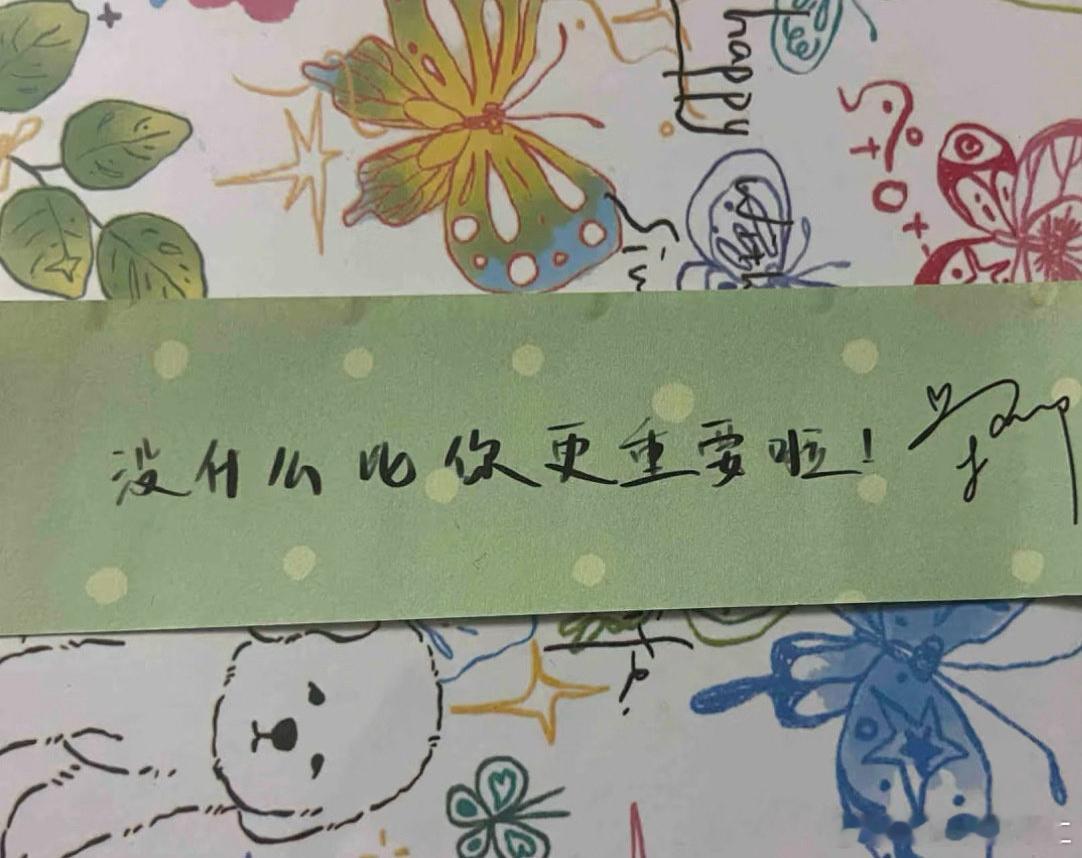 没什么比你更重要啦!
happy